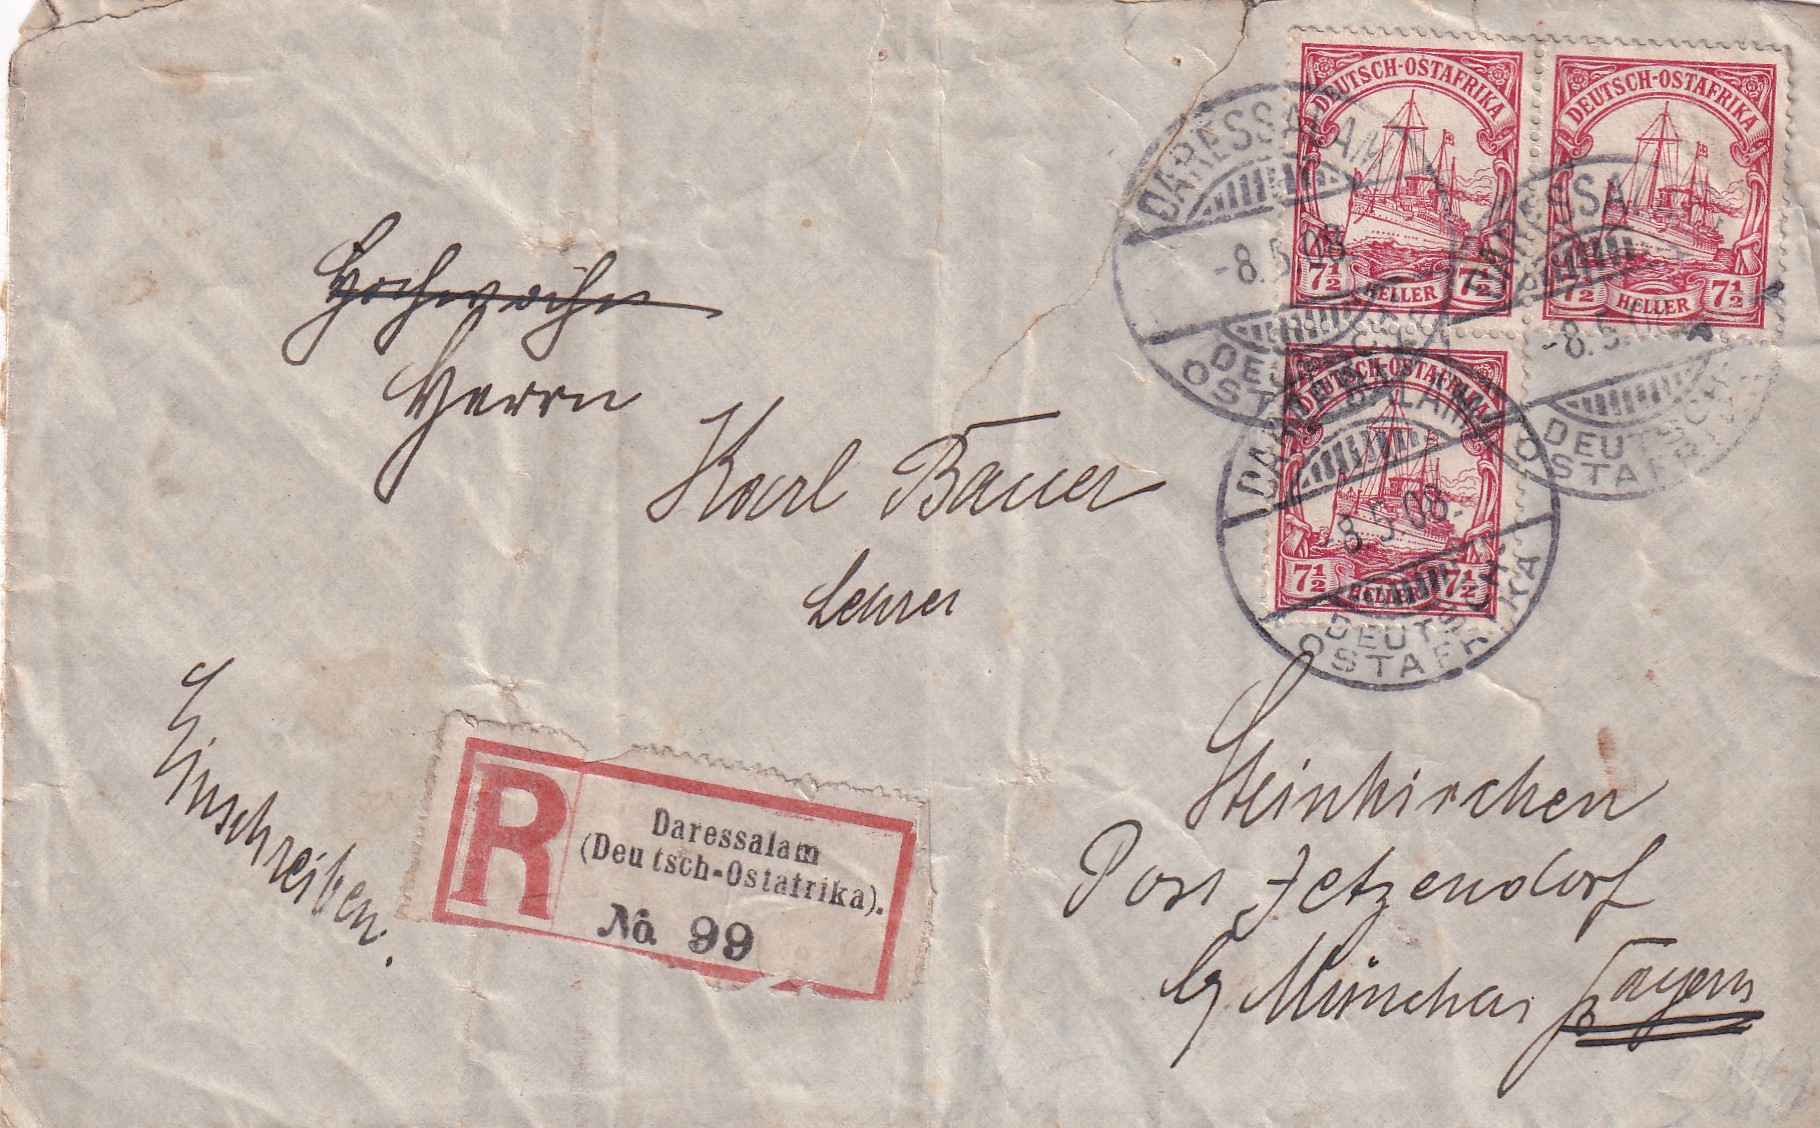 DEUTSCH-OSTAFRIKA
7½ HELLER 7½
DEUTSCH-OSTAFRIKA
7½ HELLER 7½
DEUTSCH-OSTAFRIKA
7½ HELLER 7½
DARESSALAM
-8.5.08
DEUTSCH-
OSTAFRIKA
DARESSA
-8.5.
DEUTSCH-
OSTAFRIKA
DARESSALAM
8.5.08.
DEUTSCH-
OSTAFRIKA
Herrn
Karl Bauer
Lehrer
Einschreiben.
R
Daressalam
(Deutsch-Ostafrika).
No. 99
Steinkirchen
Post Jetzendorf
b/ München Bayern